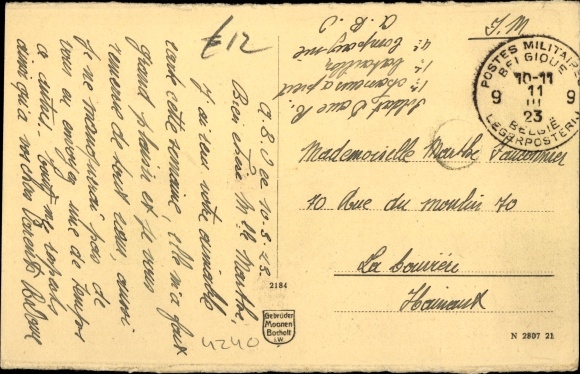 £12
S. M.
A. B. O ce 10-3-23.
Bien chère Mlle Marthe,
J'ai reçu votre aimable
carte cette semaine, elle m'a fait
grand plaisir et je vous
remercie de tout cœur, aussi
je ne manquerai pas de
vous en envoyer une de temps
à autres. Tout mes respects
ainsi qu'à vos chers Parents
Soldat
1r chasseurs à pied
1r bataillon
4e compagnie
A. B. O
POSTES MILITAIRES
BELGIQUE
10-11
11
III
23
9 9
BELGIË
LEGERPOSTERIJ
Mademoiselle Marthe
70 Rue du moulin 70
La Bouverie
Hainaut
2184
Gebrüder
Moonen
Bocholt
i.W.
4240
N 2807 21